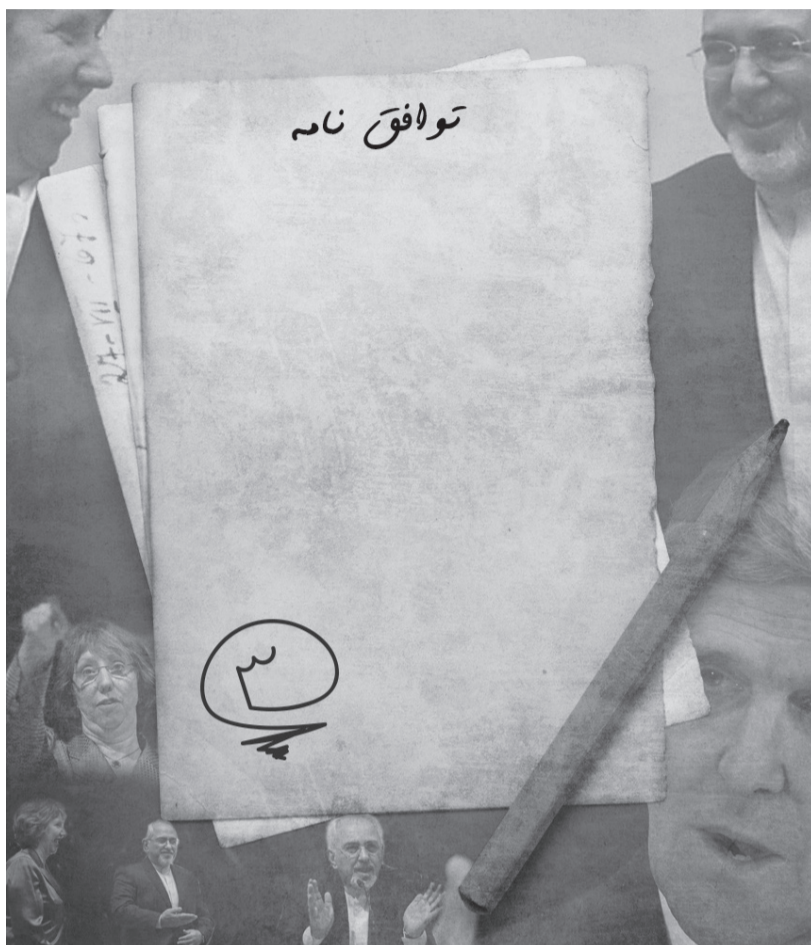 توافق نامه
۳